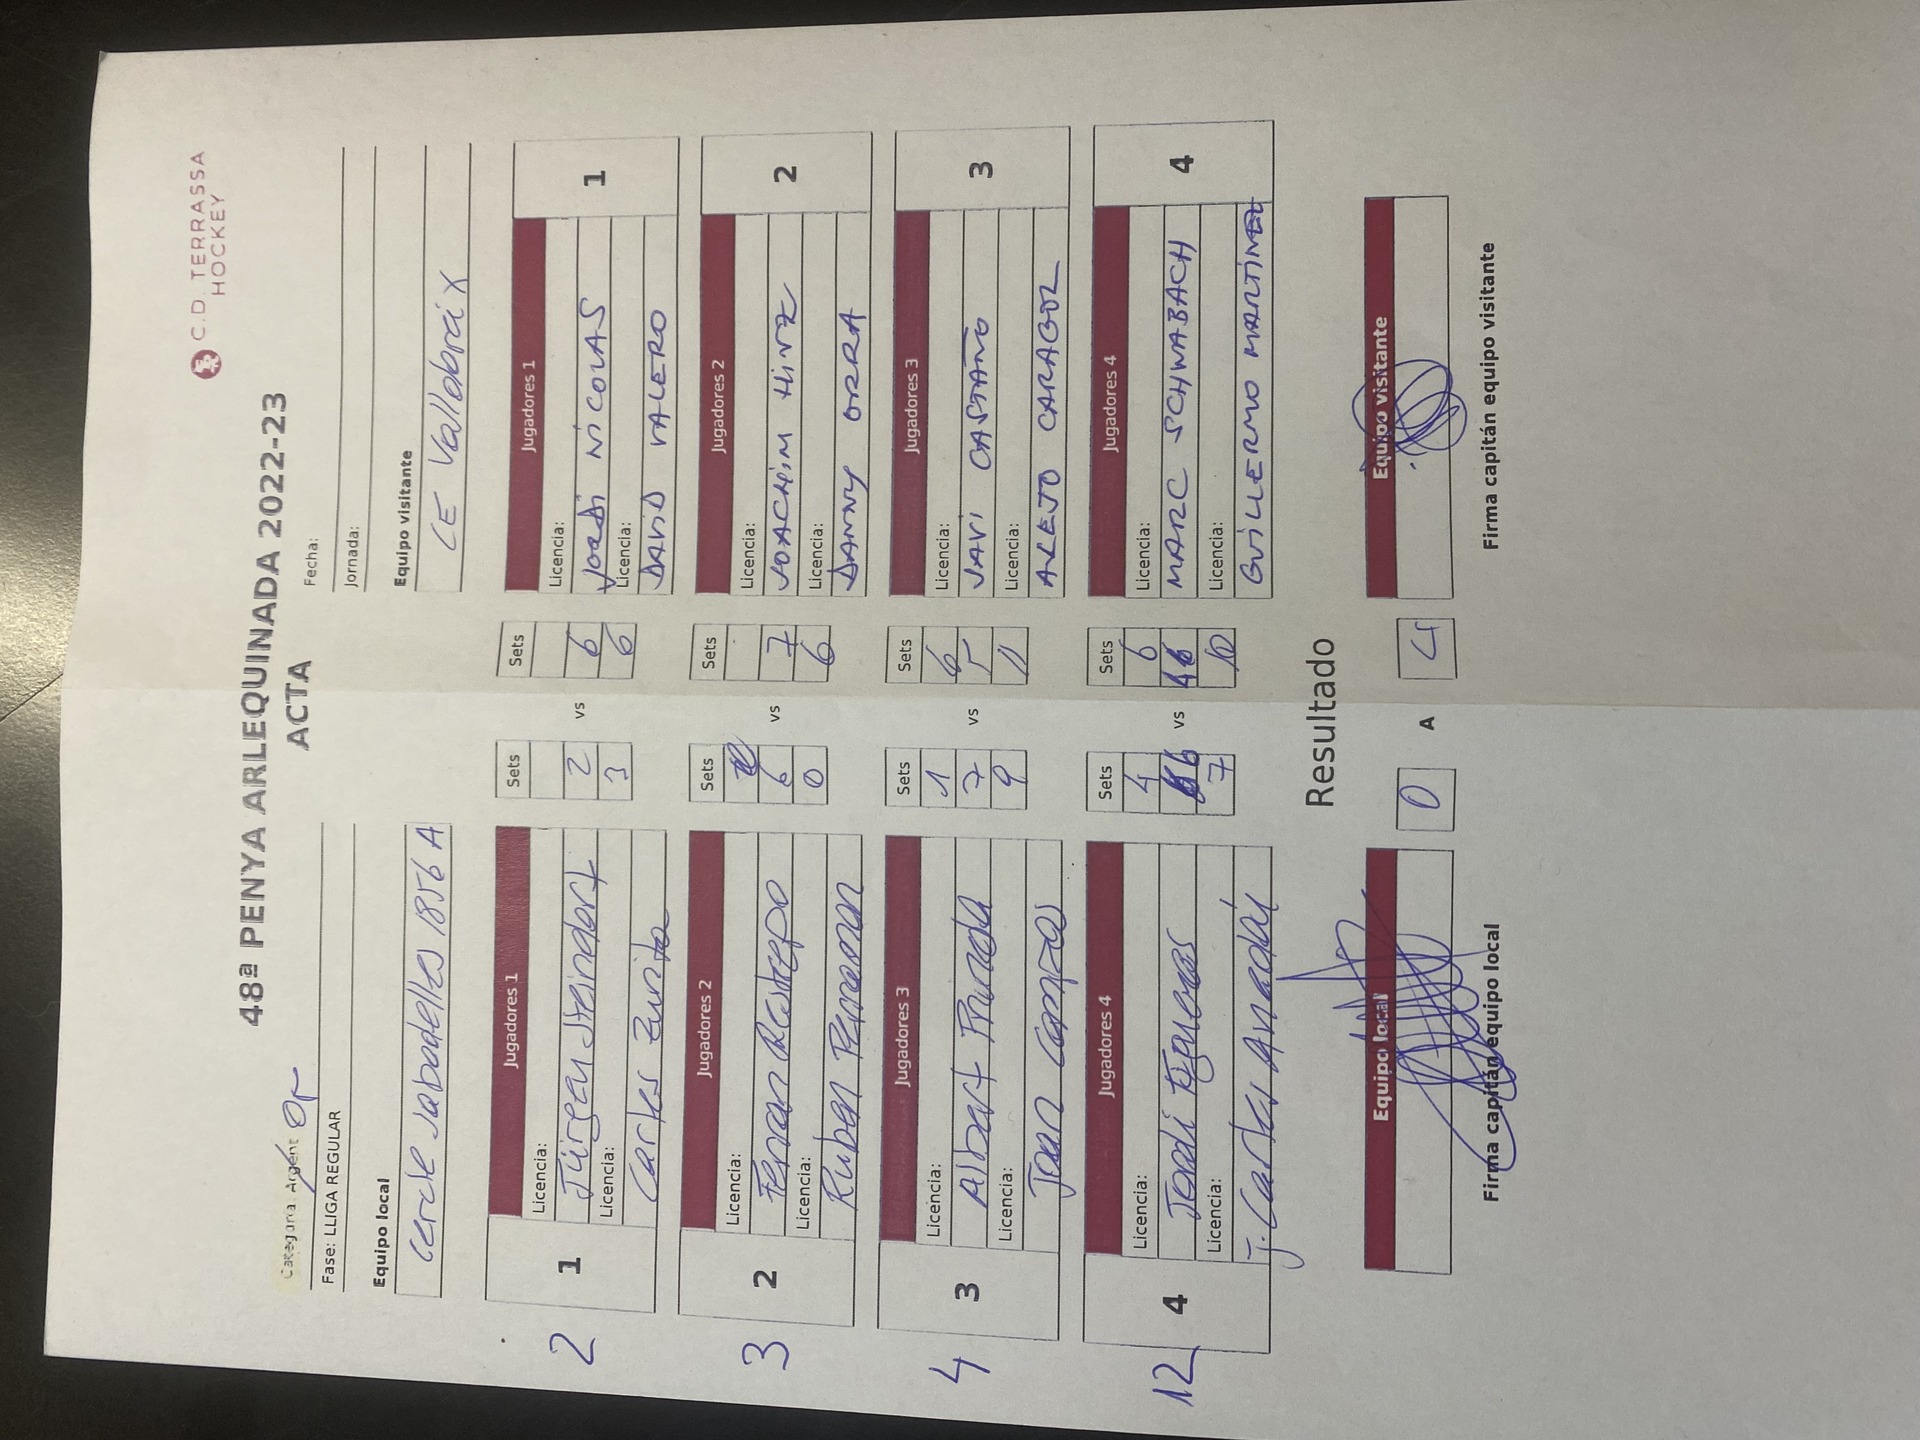 C.D. TERRASSA
HOCKEY
48ª PENYA ARLEQUINADA 2022-23
ACTA
Categoria Argent Or
Fecha:
Fase: LLIGA REGULAR
Jornada:
Equipo local
Equipo visitante
Cercle Sabadellès 1856 A
CE Valldoreix
2
1
Jugadores 1
Sets
Sets
Jugadores 1
1
Licencia:
Licencia:
Jürgen Steindorf
2
vs
6
JORDI NICOLAS
Licencia:
Licencia:
Carles Zurita
3
6
DAVID VALERO
3
2
Jugadores 2
Sets
Sets
Jugadores 2
2
Licencia:
Licencia:
Ferran Restrepo
6
vs
7
JOACHIM HINZ
Licencia:
Licencia:
Ruben Perramon
0
6
DANNY ORRA
4
3
Jugadores 3
Sets
Sets
Jugadores 3
3
Licencia:
1
6
Licencia:
Albert Prunada
7
vs
5
JAVI CASTAÑO
Licencia:
Licencia:
Joan Campos
9
11
ALEJO CARAGOL
12
4
Jugadores 4
Sets
Sets
Jugadores 4
4
Licencia:
4
6
Licencia:
Jordi Figueras
6
vs
MARC SCHWABACH
Licencia:
Licencia:
J. Carlos Amadú
7
10
GUILLERMO MARTINEZ
Resultado
Equipo local
0
A
4
Equipo visitante
Firma capitán equipo local
Firma capitán equipo visitante